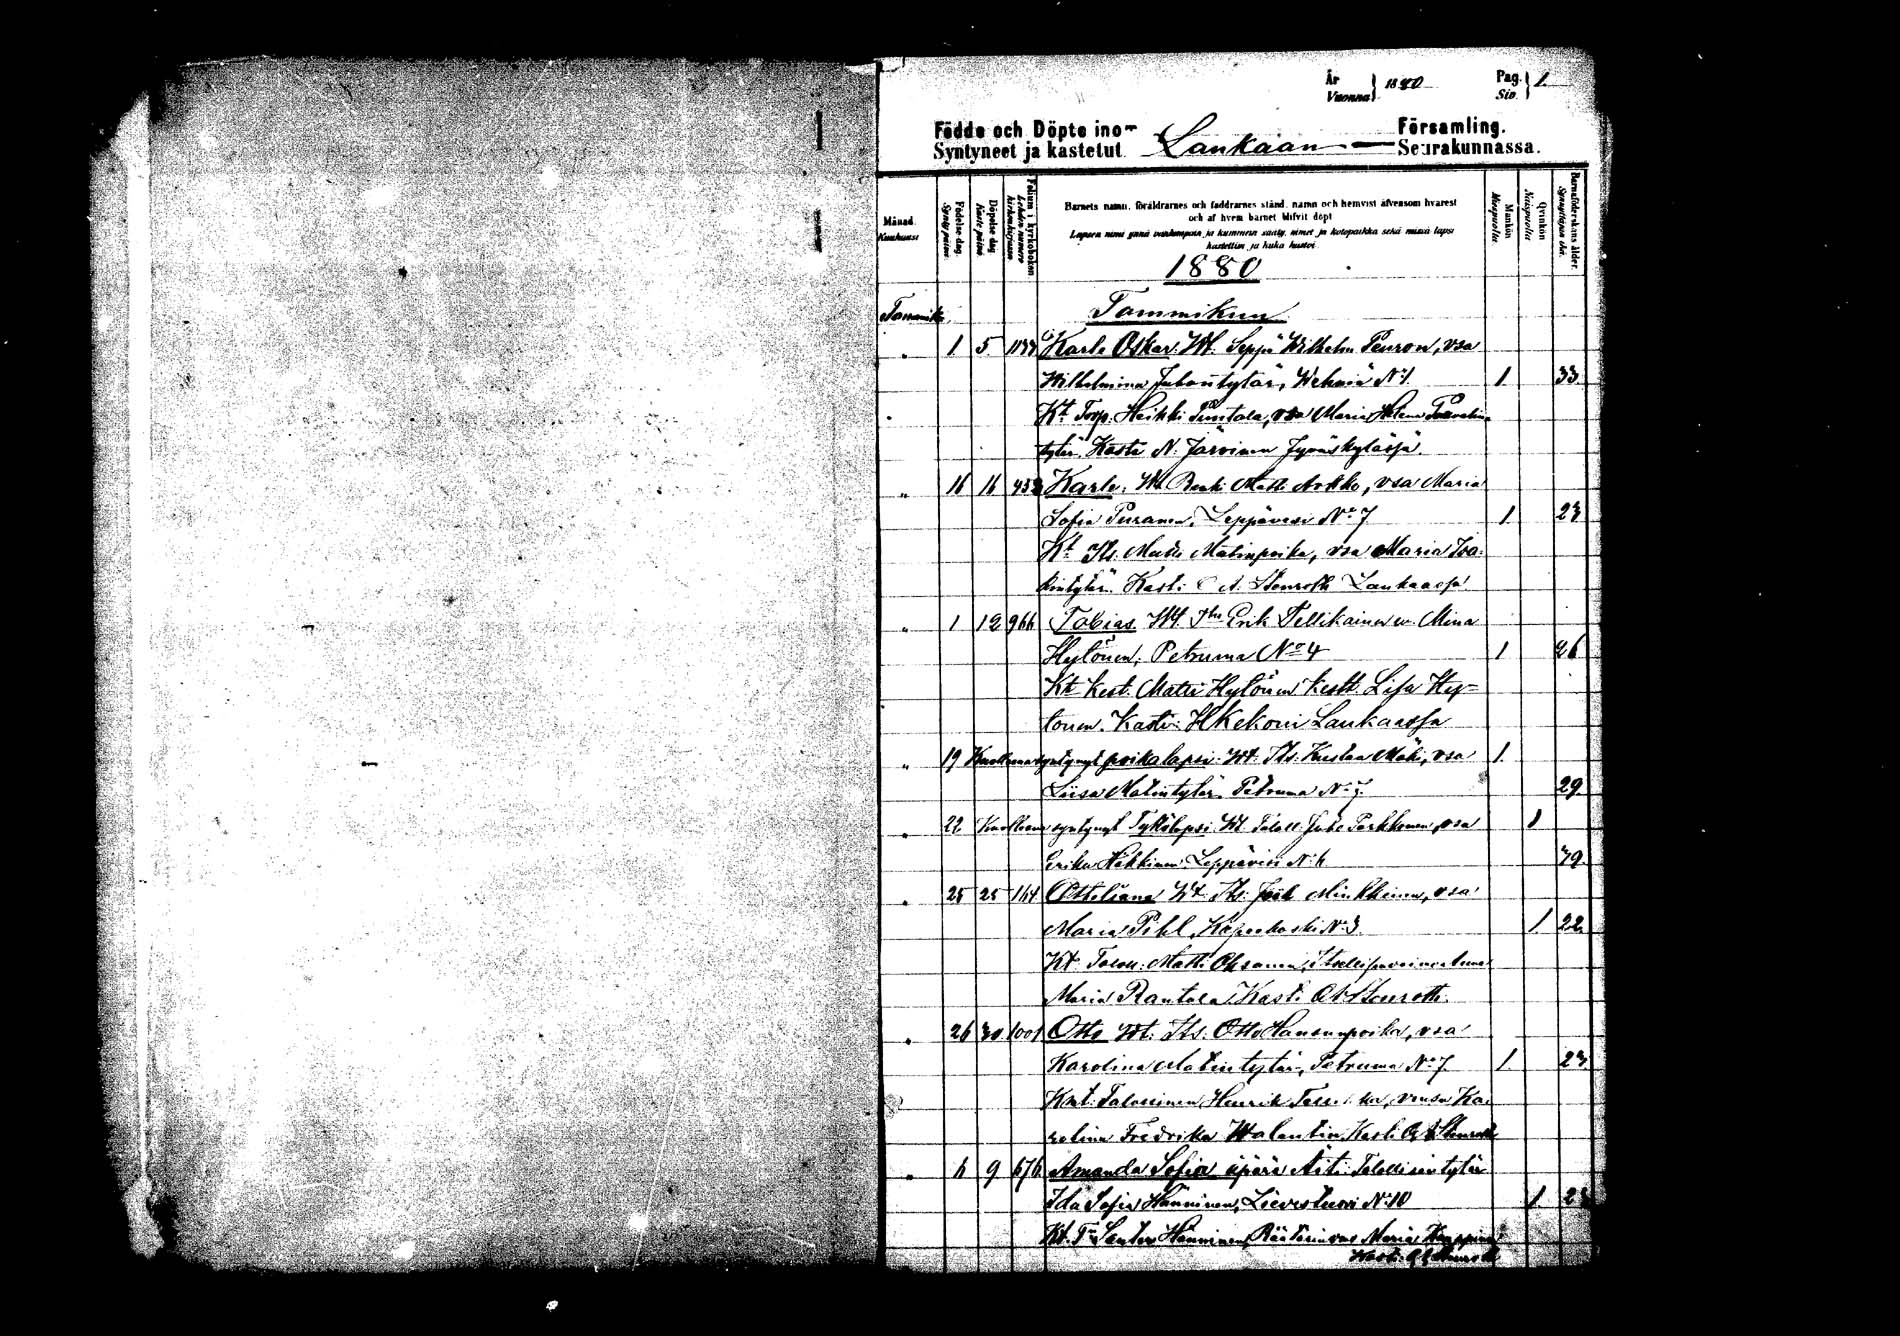 År
Vuonna } 1880
Pag.
Siv. } 1.
Födde och Döpte inom Församling.
Syntyneet ja kastetut Laukaan Seurakunnassa.
Månad.
Kuukausi
Födelse dag.
Synty päivä.
Döpelse dag
Kaste päivä
Folium i kyrkoboken
Lehden numero kirkonkirjassa
Barnets namn, föräldrarnes och faddrarnes stånd, namn och hemvist äfvensom hvarest
och af hvem barnet blifvit döpt
Lapsen nimi ynnä vanhempain ja kummein sääty, nimet ja kotopaikka sekä missä lapsi
kastettiin ja kuka kastoi
Mankön
Miespuolia
Qvinkön
Naispuolia
Barnaföderskans ålder.
Synnyttäjän ikä.
1880
Tammik. Tammikuu
1 5 Karle Oskar. Wt. Seppä Wilhelm Penron, vsa
Wilhelmina Juhontytär, Wehniä N:1. 1 33
Kt Torp. Heikki Puntala, vsa Maria Helena
tytär. Kasti N. Järvinen Jyväskylässä
16 16 Karle. Wt Renki Matti Arkko, vsa Maria
Sofia Puranen, Leppävesi No 7 1 23
Kt Its. Matti Matinpoika, vsa Maria Joa-
kintytär. Kasti: C A. Stenroth Laukaassa
1 12 966 Tobias. Wt. Erik Pellikainen w. Mina
Hytönen, Petruma No 4 1 26
Kt Kest. Matti Hytönen Kestt. Lisa Hy-
tönen. Kasti: H Kekoni Laukaassa
19 Kuolleena syntynyt poikalapsi. Wt. Its. Kustaa Mäki, vsa 1
Liisa Matintytär Petruma N:7 29
22 Kuolleena syntynyt Tyttölapsi. Wt Taloll. Juho Parkkonen, vsa 1
Erika Häkkinen Leppävesi N:6 39
25 25 164 Ottiliana Wt. Its. Minkkinen, vsa
Maria Pihl, Kapeekoski N:3 1 22
Kt. Talon. Matti Oksanen,
Maria Rantala. Kasti CA Stenroth.
26 30 1001 Otto Wt. Its. Otto Hanunpoika, vsa
Karolina Matintytär, Petruma No 7. 1 23
Kmt. Talollinen Henrik, vmsa Ka-
rolina Fredrika Walentin. Kasti CA Stenroth
6 9 676 Amanda Sofia äpärä Äiti: Talollisentytär
Ida Sofia Hänninen, Lievestuori N:10 1
Kt. Santeri Hänninen, Räätärin vmo Maria
Kasti: CA Stenroth